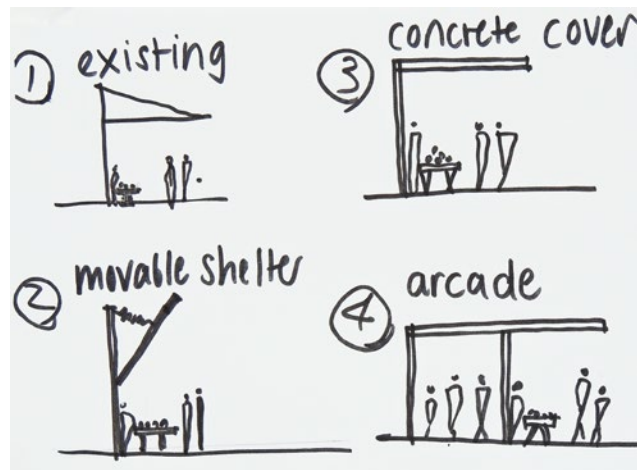 1 existing
2 movable shelter
3 concrete cover
4 arcade